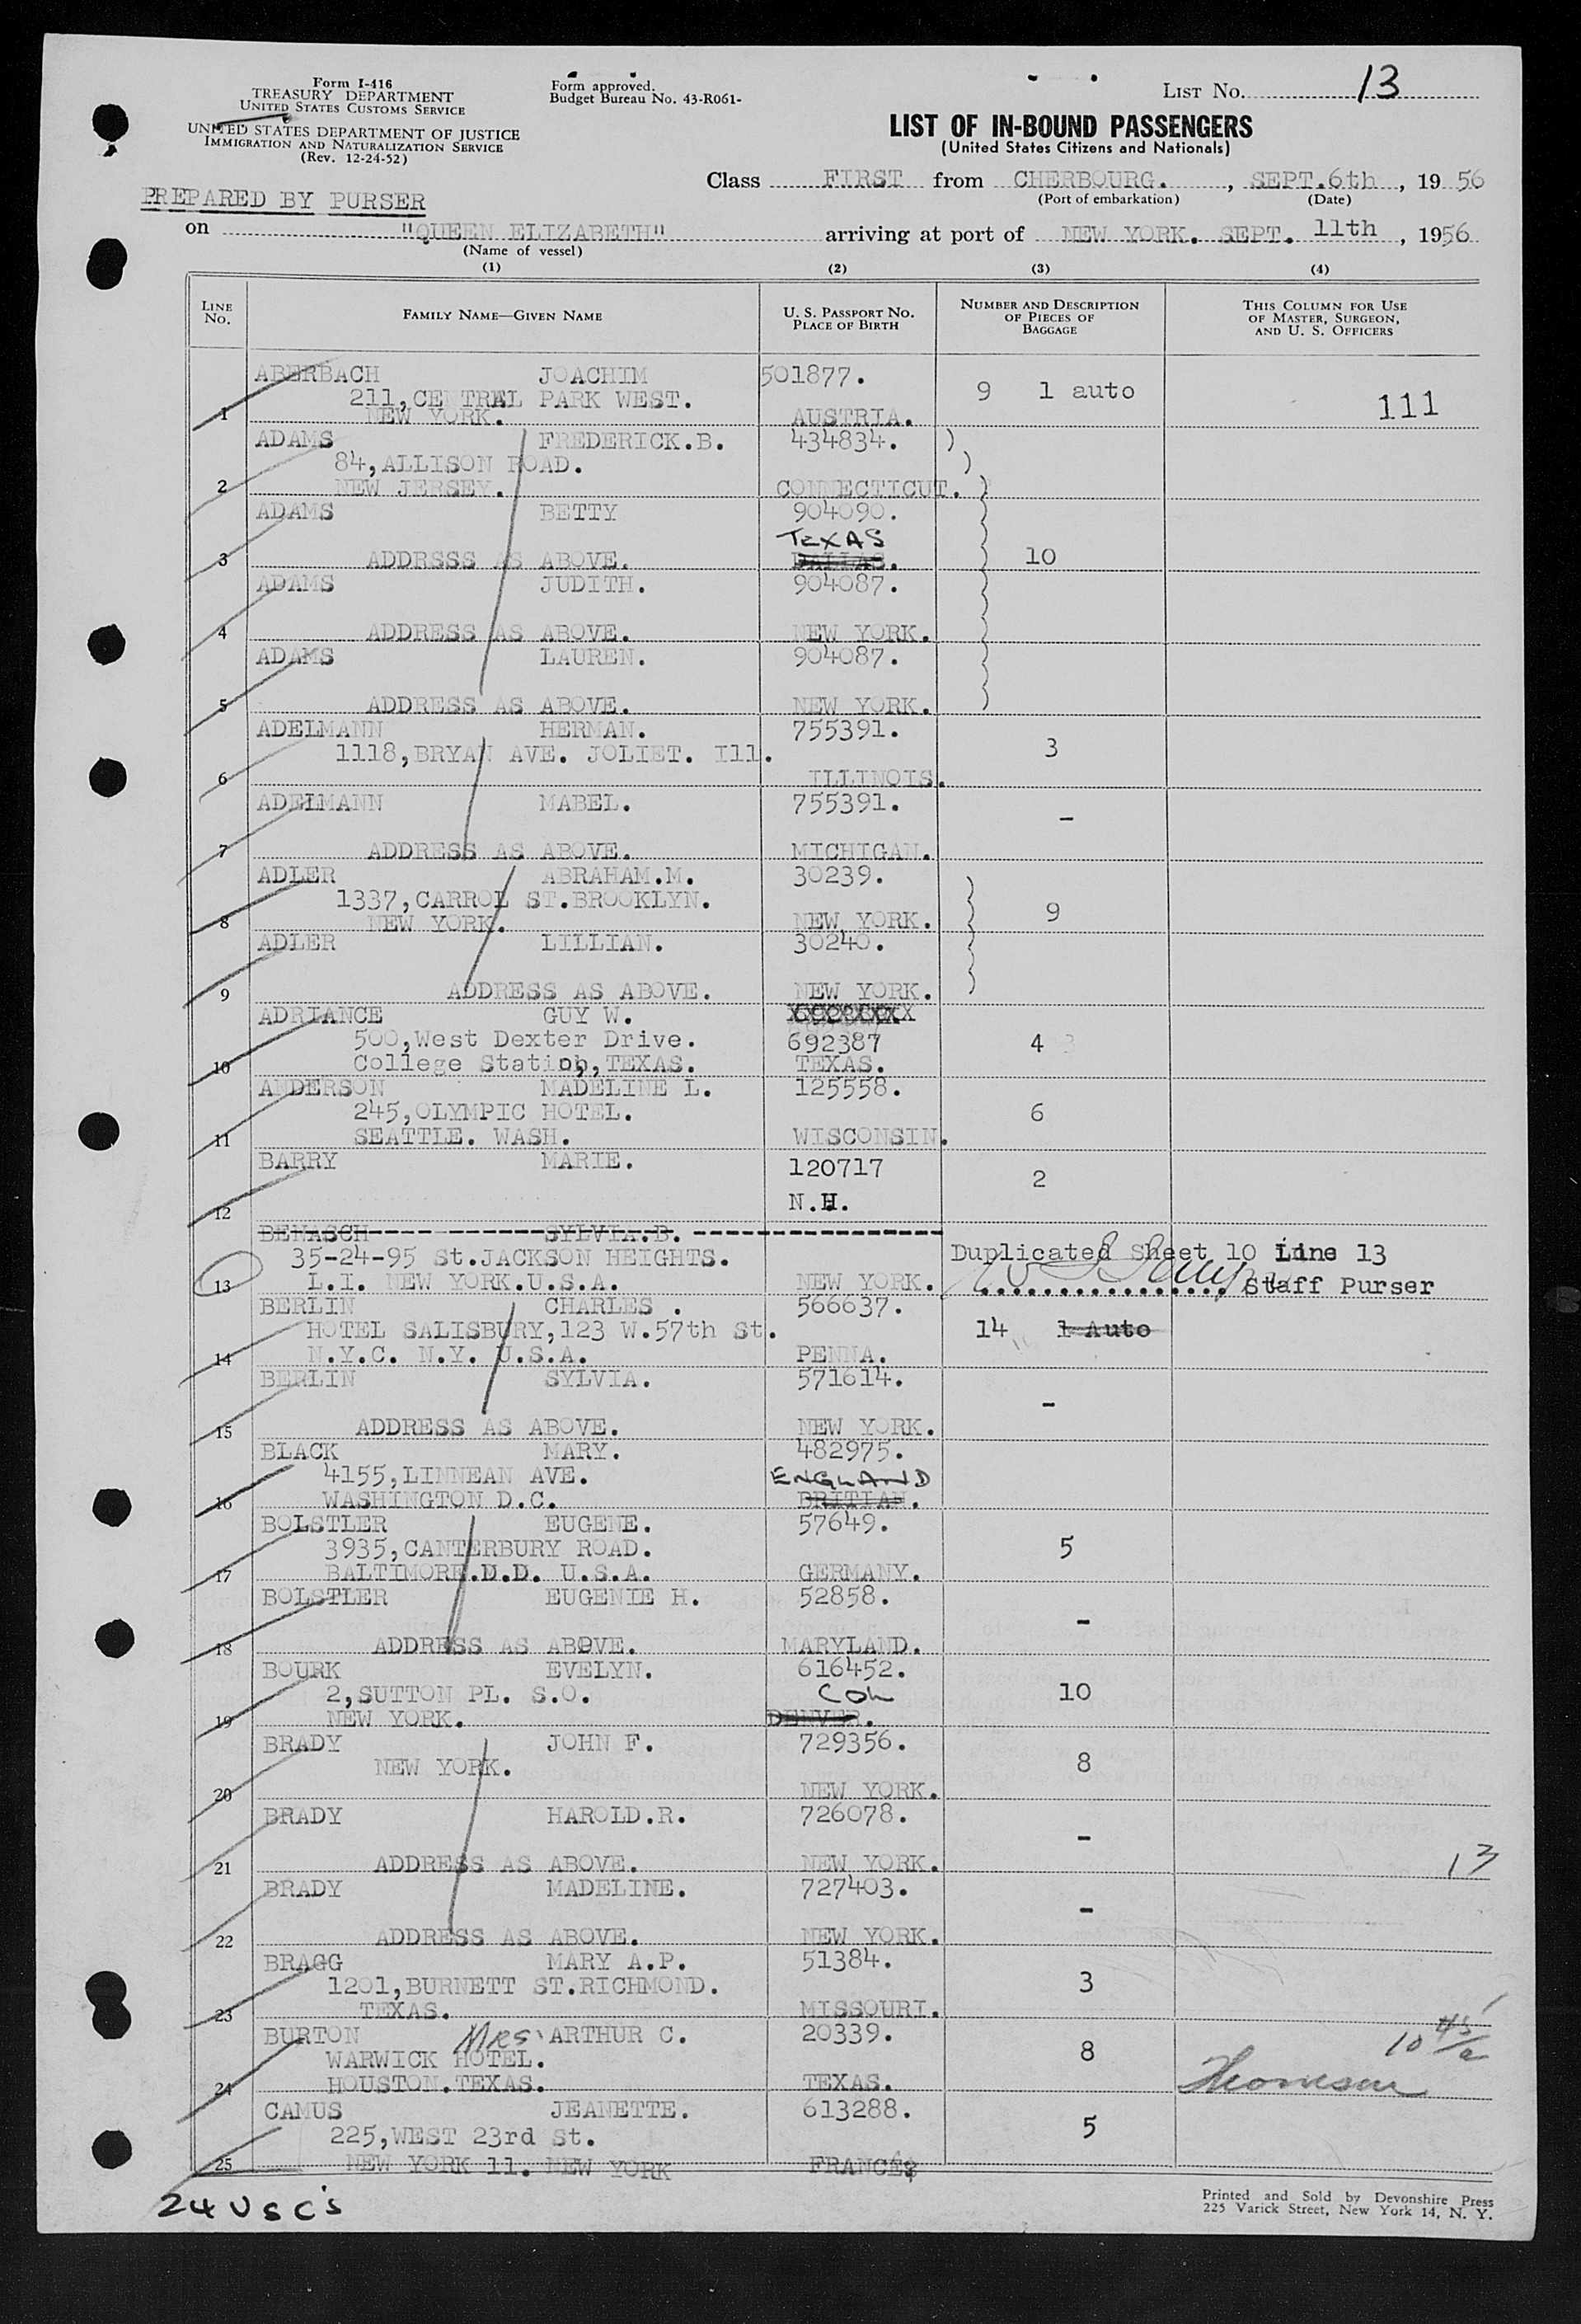 Form I-416
TREASURY DEPARTMENT
UNITED STATES CUSTOMS SERVICE
UNITED STATES DEPARTMENT OF JUSTICE
IMMIGRATION AND NATURALIZATION SERVICE
(Rev. 12-24-52)
Form approved.
Budget Bureau No. 43-R061-
LIST No. 13
LIST OF IN-BOUND PASSENGERS
(United States Citizens and Nationals)
PREPARED BY PURSER
Class FIRST from CHERBOURG. , SEPT.6th , 19 56
(Port of embarkation) (Date)
on "QUEEN ELIZABETH" arriving at port of NEW YORK. SEPT. 11th , 1956
(Name of vessel)
(1) (2) (3) (4)
LINE No. FAMILY NAME—GIVEN NAME U. S. PASSPORT No. PLACE OF BIRTH NUMBER AND DESCRIPTION OF PIECES OF BAGGAGE THIS COLUMN FOR USE OF MASTER, SURGEON, AND U. S. OFFICERS
ABERBACH JOACHIM 501877.
211,CENTRAL PARK WEST. 9 1 auto 111
1 NEW YORK. AUSTRIA.
ADAMS FREDERICK.B. 434834. )
84,ALLISON ROAD. )
2 NEW JERSEY. CONNECTICUT. )
ADAMS BETTY 904090.
TEXAS
3 ADDRSSS AS ABOVE. DALLAS. 10
ADAMS JUDITH. 904087.
4 ADDRESS AS ABOVE. NEW YORK.
ADAMS LAUREN. 904087.
5 ADDRESS AS ABOVE. NEW YORK.
ADELMANN HERMAN. 755391.
1118,BRYAN AVE. JOLIET. Ill. 3
6 ILLINOIS.
ADELMANN MABEL. 755391.
-
7 ADDRESS AS ABOVE. MICHIGAN.
ADLER ABRAHAM.M. 30239.
1337,CARROL ST.BROOKLYN. 9
8 NEW YORK. NEW YORK.
ADLER LILLIAN. 30240.
9 ADDRESS AS ABOVE. NEW YORK.
ADRIANCE GUY W.
500,West Dexter Drive. 692387 4
10 College Station,TEXAS. TEXAS.
ANDERSON MADELINE L. 125558.
245,OLYMPIC HOTEL. 6
11 SEATTLE. WASH. WISCONSIN.
BARRY MARIE. 120717 2
12 N.H.
BENASCH SYLVIA.B.
35-24-95 St.JACKSON HEIGHTS. Duplicated Sheet 10 Line 13
13 L.I. NEW YORK.U.S.A. NEW YORK. Staff Purser
BERLIN CHARLES . 566637.
HOTEL SALISBURY,123 W.57th St. 14 1 Auto
14 N.Y.C. N.Y. U.S.A. PENNA.
BERLIN SYLVIA. 571614.
-
15 ADDRESS AS ABOVE. NEW YORK.
BLACK MARY. 482975.
4155,LINNEAN AVE. ENGLAND
16 WASHINGTON D.C. BRITIAN.
BOLSTLER EUGENE. 57649.
3935,CANTERBURY ROAD. 5
17 BALTIMORE.D.D. U.S.A. GERMANY.
BOLSTLER EUGENIE H. 52858.
-
18 ADDRESS AS ABOVE. MARYLAND.
BOURK EVELYN. 616452.
2,SUTTON PL. S.O. COL 10
19 NEW YORK. DENVER.
BRADY JOHN F. 729356.
NEW YORK. 8
20 NEW YORK.
BRADY HAROLD.R. 726078.
-
21 ADDRESS AS ABOVE. NEW YORK. 13
BRADY MADELINE. 727403.
-
22 ADDRESS AS ABOVE. NEW YORK.
BRAGG MARY A.P. 51384.
1201,BURNETT ST.RICHMOND. 3
23 TEXAS. MISSOURI.
BURTON Mrs ARTHUR C. 20339.
WARWICK HOTEL. 8 10 45/a
24 HOUSTON.TEXAS. TEXAS.
CAMUS JEANETTE. 613288.
225,WEST 23rd St. 5
25 NEW YORK 11. NEW YORK FRANCE
24 USC's
Printed and Sold by Devonshire Press
225 Varick Street, New York 14, N. Y.